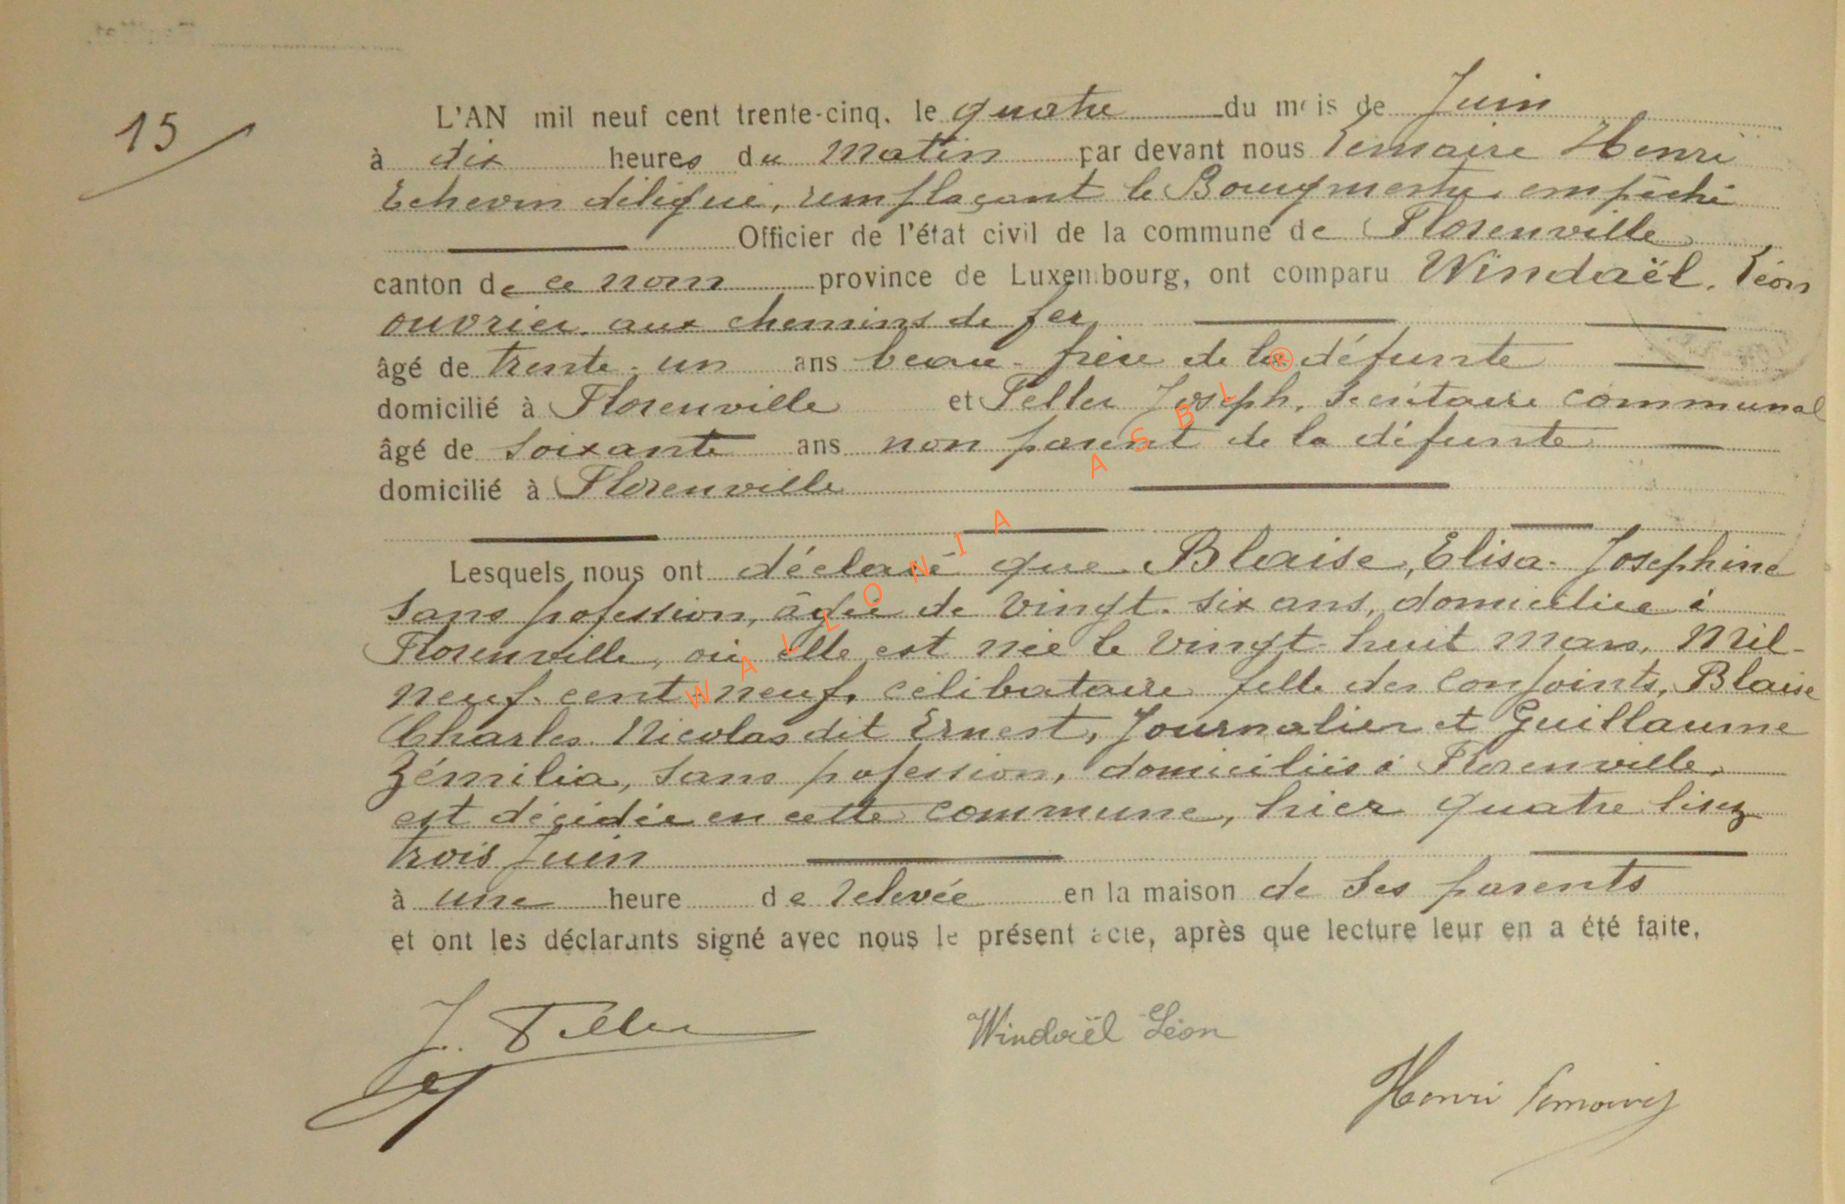 15
L'AN mil neuf cent trente-cinq, le quatre du mois de Juin
à dix heures du Matin par devant nous Lemaire Henri
Echevin délégué, remplaçant le Bourgmestre empêché
Officier de l'état civil de la commune de Florenville
canton de ce nom province de Luxembourg, ont comparu Windaël, Léon
ouvrier aux chemins de fer
âgé de trente-un ans beau-frère de la défunte
domicilié à Florenville et Peller Joseph, Secrétaire communal
âgé de soixante ans non parent de la défunte
domicilié à Florenville
Lesquels nous ont déclaré que Blaise, Elisa-Josephine
sans pofession, âgée de vingt-six ans, domiciliée à
Florenville, où elle est née le vingt-huit mars, Mil-
neuf-cent-neuf, célibataire fille des conjoints, Blaise
Charles Nicolas dit Ernest, Journalier et Guillaume
Zémilia, sans pofession, domiciliés à Florenville,
est décédée en cette commune, hier quatre lisez
trois Juin
à une heure de relevée en la maison de ses parents
et ont les déclarants signé avec nous le présent acte, après que lecture leur en a été faite.
J. Peller Windaël Léon
Henri Lemaire
WALLONIA ASBL ®